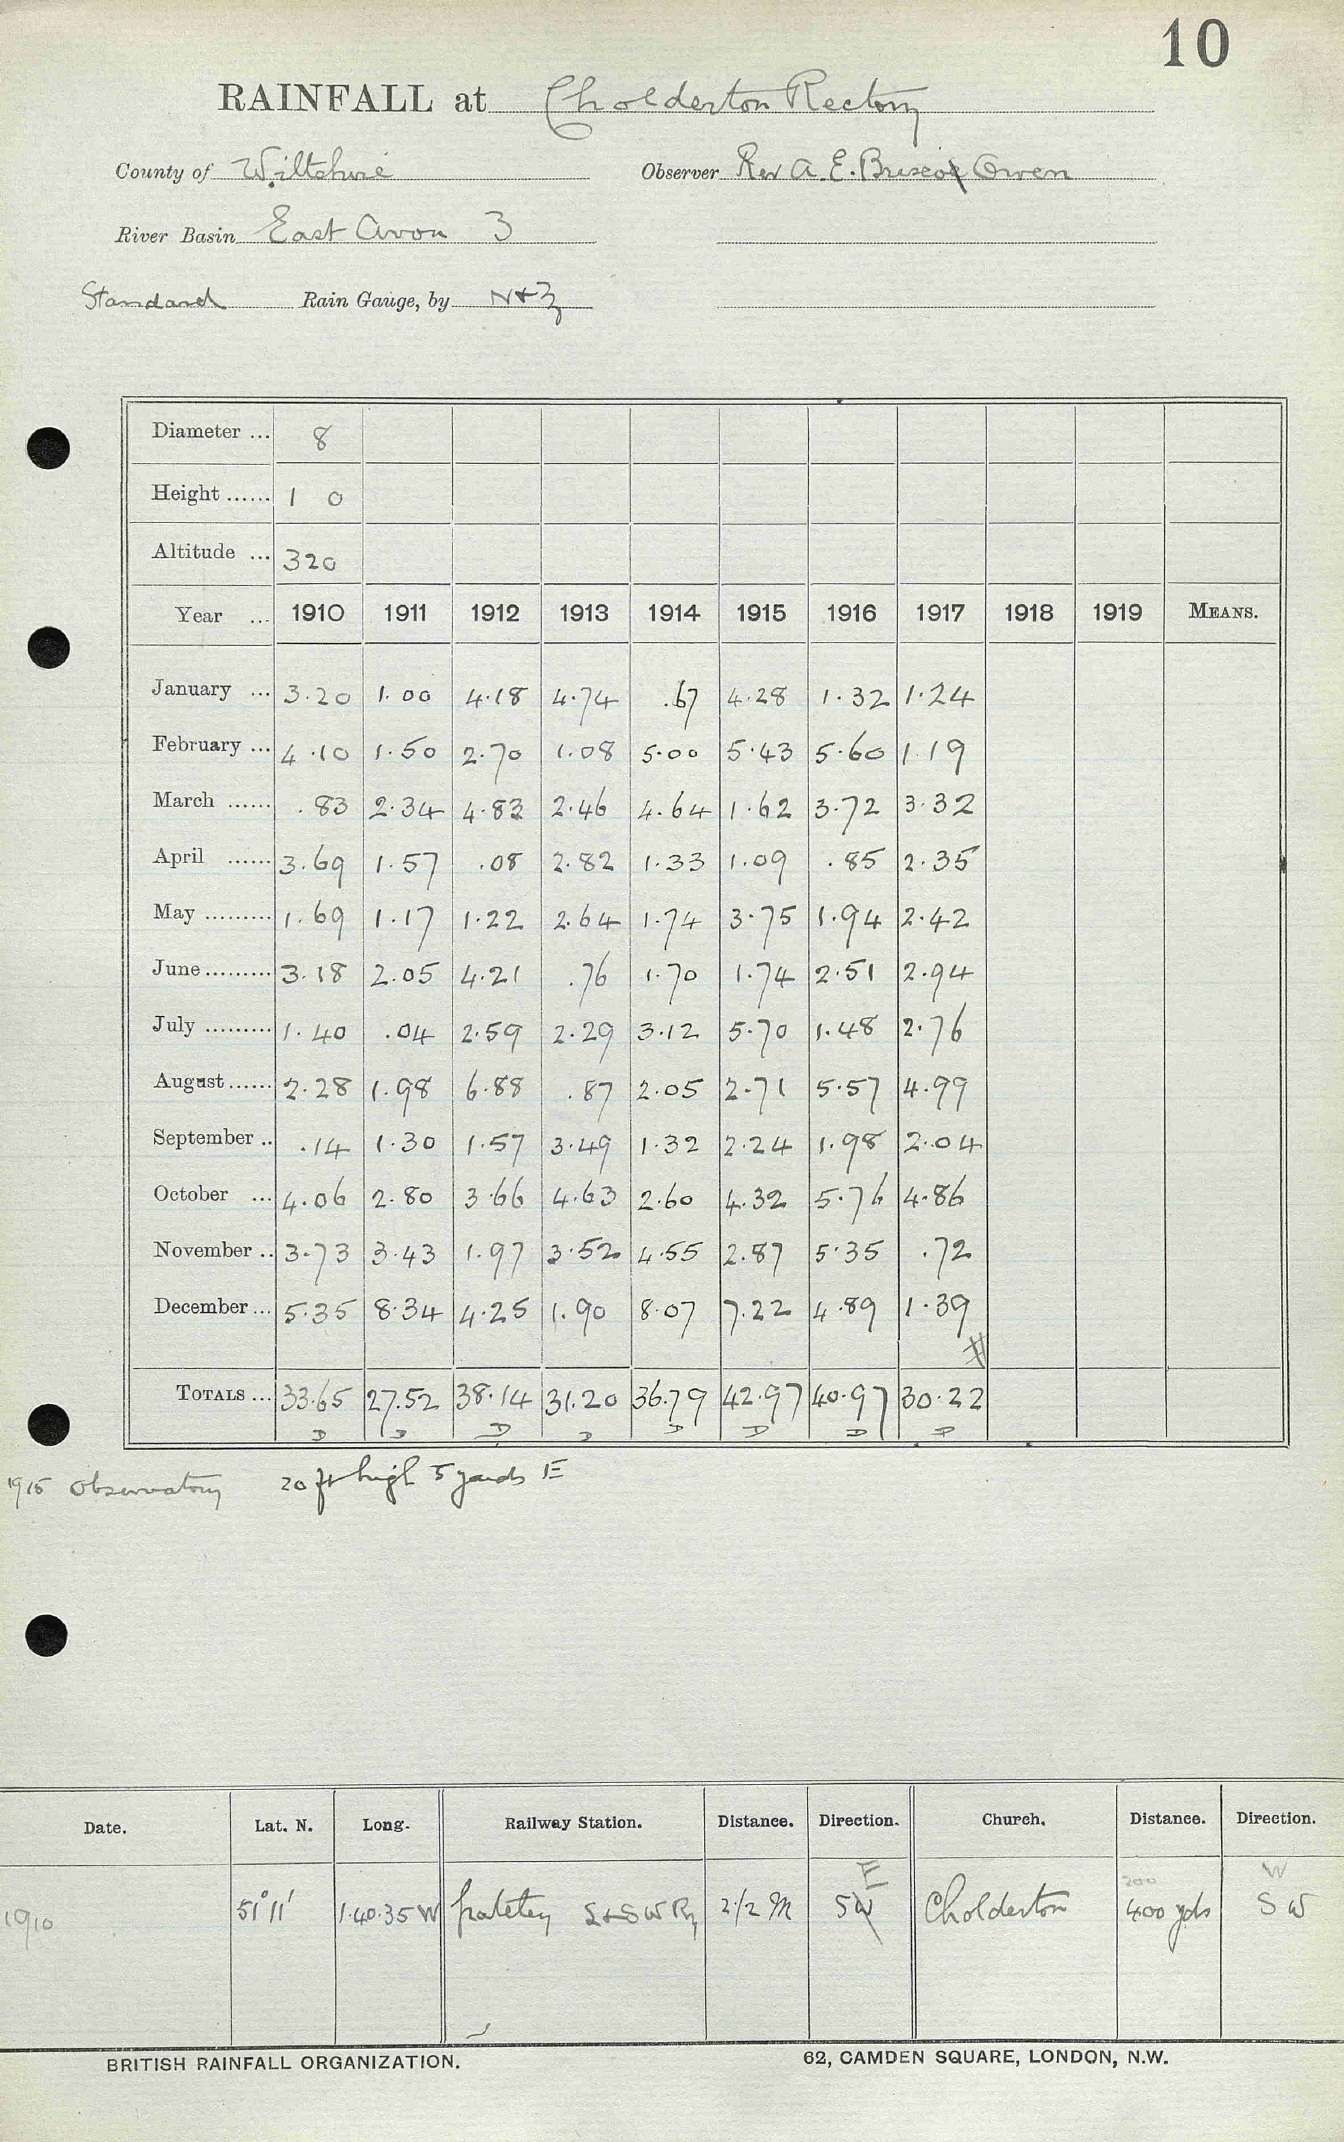 10
RAINFALL at Cholderton Rectory
County of Wiltshire Observer Rev A. E. Briscoe Owen
River Basin East Avon 3
Standard Rain Gauge, by N+Z
Diameter ... 8
Height ...... 1 0
Altitude ... 320
Year ... 1910 1911 1912 1913 1914 1915 1916 1917 1918 1919 MEANS.
January ... 3.20 1.00 4.18 4.74 .67 4.28 1.32 1.24
February ... 4.10 1.50 2.70 1.08 5.00 5.43 5.60 1.19
March ...... .83 2.34 4.83 2.46 4.64 1.62 3.72 3.32
April ...... 3.69 1.57 .08 2.82 1.33 1.09 .85 2.35
May ......... 1.69 1.17 1.22 2.64 1.74 3.75 1.94 2.42
June ......... 3.18 2.05 4.21 .76 1.70 1.74 2.51 2.94
July ......... 1.40 .04 2.59 2.29 3.12 5.70 1.48 2.76
August ...... 2.28 1.98 6.88 .87 2.05 2.71 5.57 4.99
September .. .14 1.30 1.57 3.49 1.32 2.24 1.98 2.04
October ... 4.06 2.80 3.66 4.63 2.60 4.32 5.76 4.86
November .. 3.73 3.43 1.97 3.52 4.55 2.87 5.35 .72
December ... 5.35 8.34 4.25 1.90 8.07 7.22 4.89 1.39
#
TOTALS ... 33.65 27.52 38.14 31.20 36.79 42.97 40.97 30.22
D D D D D D D D
1915 Observatory 20 ft high 5 yards E
Date. Lat. N. Long. Railway Station. Distance. Direction. Church. Distance. Direction.
E 200 W
1910 51° 11' 1.40.35 W L+SW Ry 2 1/2 M SW Cholderton 400 yds S W
BRITISH RAINFALL ORGANIZATION. 62, CAMDEN SQUARE, LONDON, N.W.